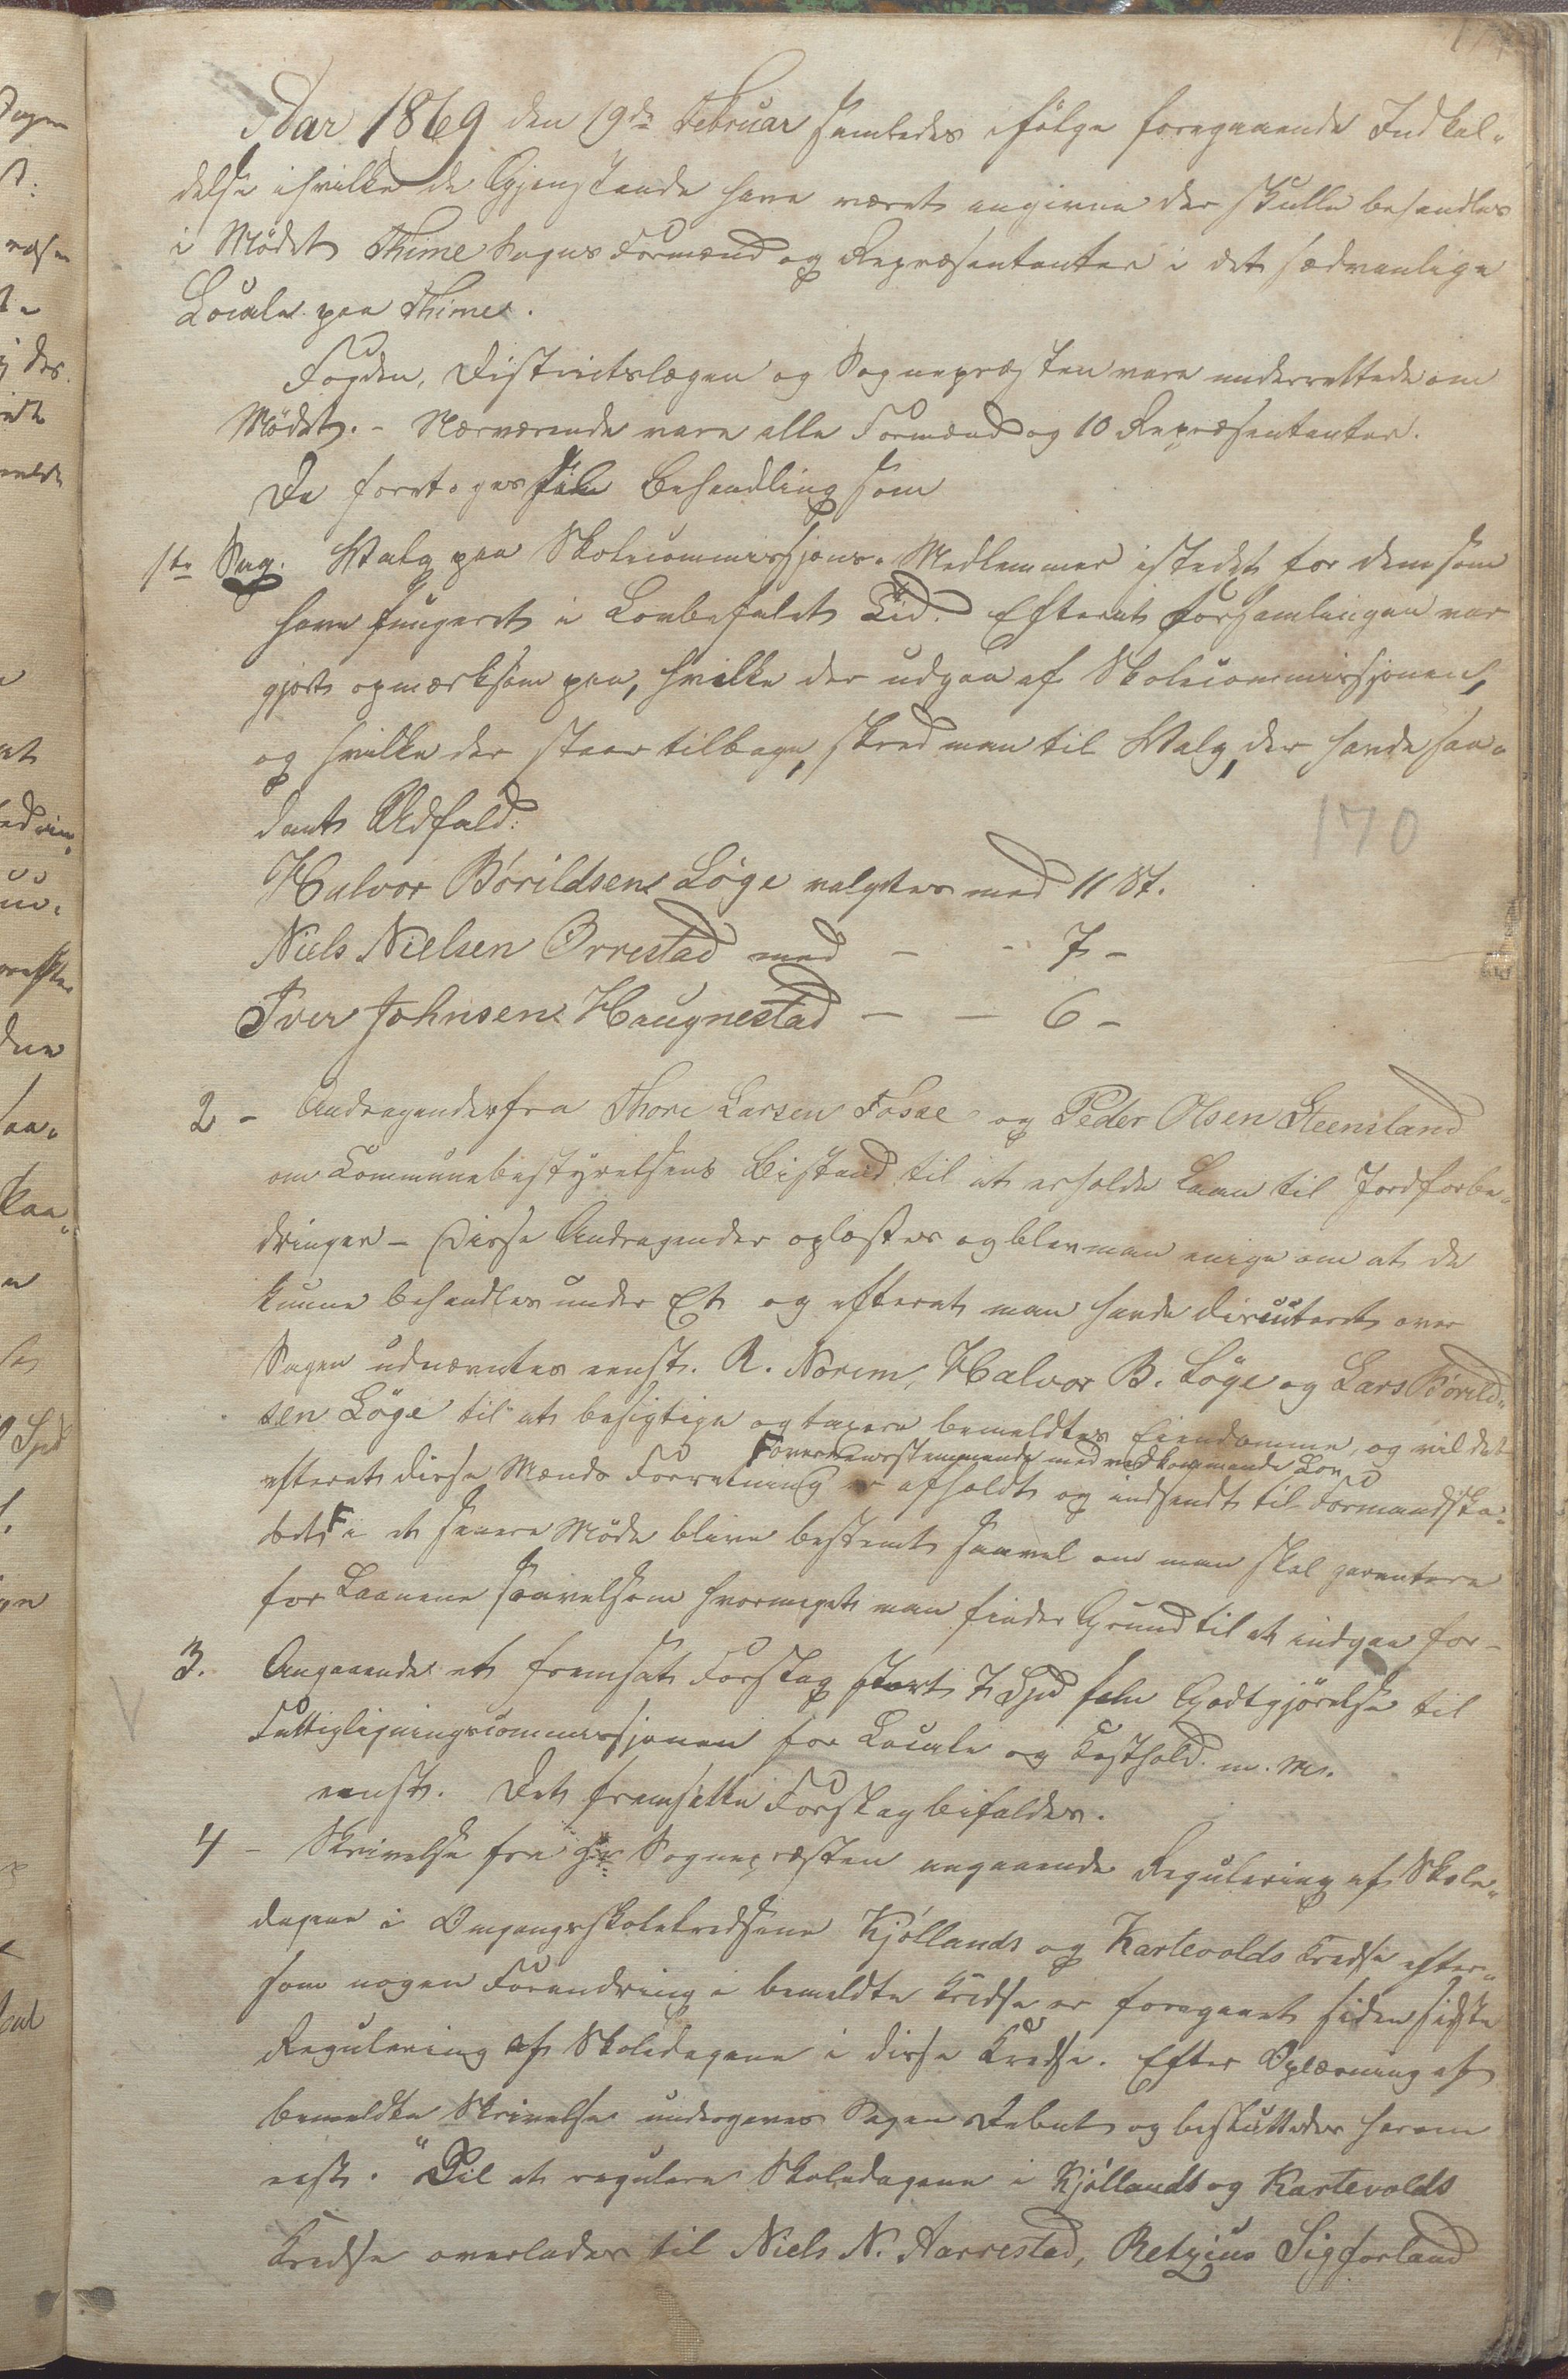 Aar 1869 den 19de Februar samledes ifølge foregaaende Indkal-
delse i hvilke de Gjenstande have været angivne der skulle behandles
i Mødet Thime Sogns Formænd og Repræsentanter i det sædvanlige
Locale paa Thime.
Fogden, Districtslægen og Sognepræsten vare underrettede om
Mødet. - Nærværende vare alle Formænd og 10 Repræsentanter.
De foretoges til Behandling som
1te Sag. Valg paa Skolecommissjons-Medlemmer istedet for dem som
have fungeret i Lovbefalet Tid. Efterat Forsamlingen var
gjort opmærksom paa, hvilke der udgaa af Skolecommissjonen,
og hvilke der staar tilbage, skred man til Valg, der havde saa-
dant Udfald:
170
Halvor Bórildsen Löge valgtes med 11 St.
Niels Nielsen Orrestad med - - 7 -
Iver Johnsen Haugnestad - - 6 -
2 - Andragender fra Thore Larsen Fosse og Peder Olsen Steensland
om Communebestyrelsens Bistand til at erholde Laan til Jordforbe-
dringer - Disse Andragender oplæstes og blev man enige om at de
kunne behandles under Et og efterat man havde discuteret over
Sagen udnævntes eenst. R. Norem, Halvor B. Löge og Lars Börild-
sen Löge til at besigtige og taxere bemeldtes Eiendomme, og vil det
overeensstemmende med vedkommende Lov
efterat disse Mænds Forretning er afholdt og indsendt til Formandska-
bet i et senere Møde blive bestemt saavel om man skal garantere
for Laanene saavelsom hvormeget man finder Grund til at indgaa for -
3. Angaaende et fremsat Forslag stort 7 Spd som Godtgjörelse til
Fattigligningscommissjonen for Locale og Kosthold m. m.
eenst. Det fremsatte Forslag bifaldes.
4 - Skrivelse fra Hr Sognepræsten angaaende Regulering af Skole-
dagene i Omgangsskolekredsene Kjöllands og Kartevolds Kredse efter-
som nogen Forandring i bemeldte Kredse er foregaaet siden sidste
Regulering af Skoledagene i disse Kredse. Efter Oplæsning af
bemeldte Skrivelse undergaves Sagen Debat og besluttedes herom
eenst. "Til at regulere Skoledagene i Kjöllands og Kartevolds
Kredse overlades til Niels N. Aarrestad, Retzius Sigforland